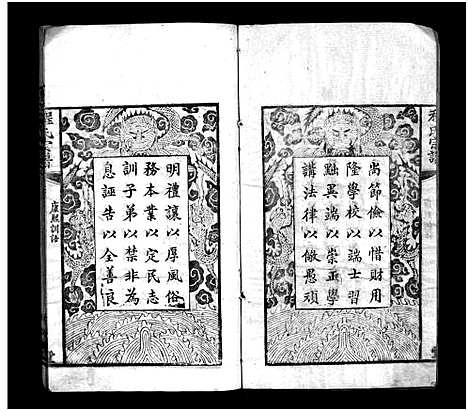 程氏宗譜
尚節儉以惜財用
隆學校以端士習
黜異端以崇正學
講法律以儆愚頑
明禮讓以厚風俗
務本業以定民志
訓子弟以禁非為
息誣告以全善良
程氏宗譜
聖諭